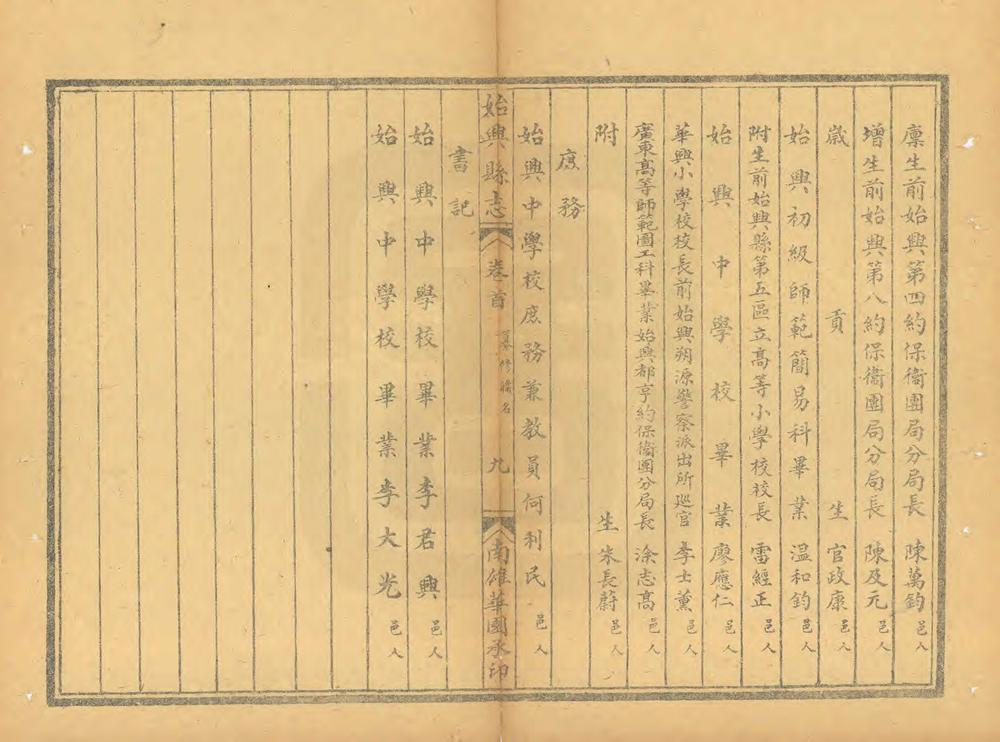 廩生前始興第四約保衞團局分局長 陳萬鈞 邑人
增生前始興第八約保衞團局分局長 陳及元 邑人
歲貢生 官政康 邑人
始興初級師範簡易科畢業 溫和鈞 邑人
附生前始興縣第五區立高等小學校校長 雷經正 邑人
始興中學校畢業 廖應仁 邑人
華興小學校校長前始興朔源警察派出所巡官 李士薰 邑人
廣東高等師範圖工科畢業始興都亨約保衞團分局長 涂志高 邑人
附生 朱長蔚 邑人
庶務
始興中學校庶務兼教員何利民 邑人
始興縣志 卷首 纂修職名 九 南雄華園承印
書記
始興中學校畢業李君興 邑人
始興中學校畢業李大光 邑人